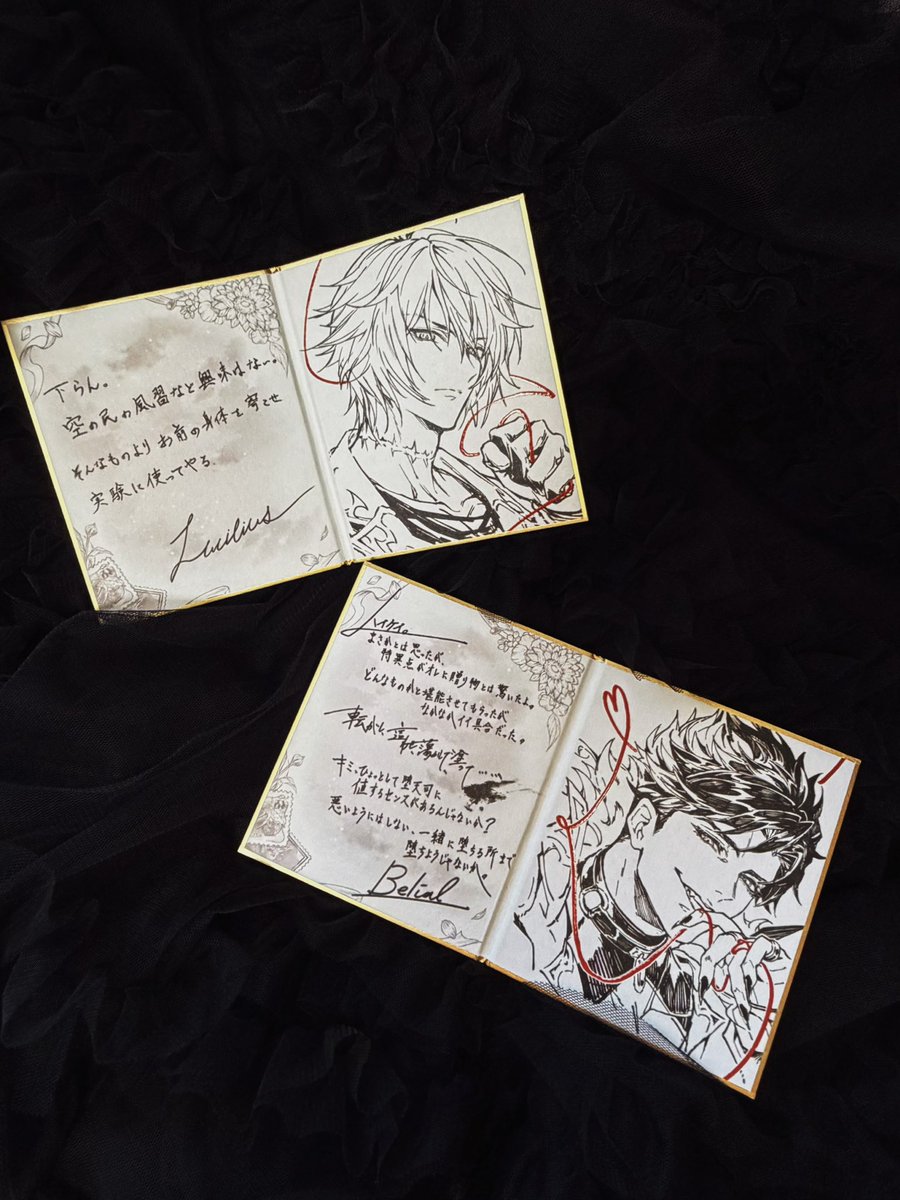 下らん。
空の民の風習など興味はない。
そんなものより お前の身体を寄こせ
実験に使ってやる。
Lucilius
ハイケイ。
まさかとは思ったが、
特異点がオレに贈り物とは驚いたよ。
どんなものかと堪能させてもらったが
なかなかイイ具合だった。
転がし 蕩かして塗って……。
キミ、ひょっとして堕天司に
値するセンスがあるんじゃないか?
悪いようにはしない、一緒に堕ちる所まで
堕ちようじゃないか。
Belial